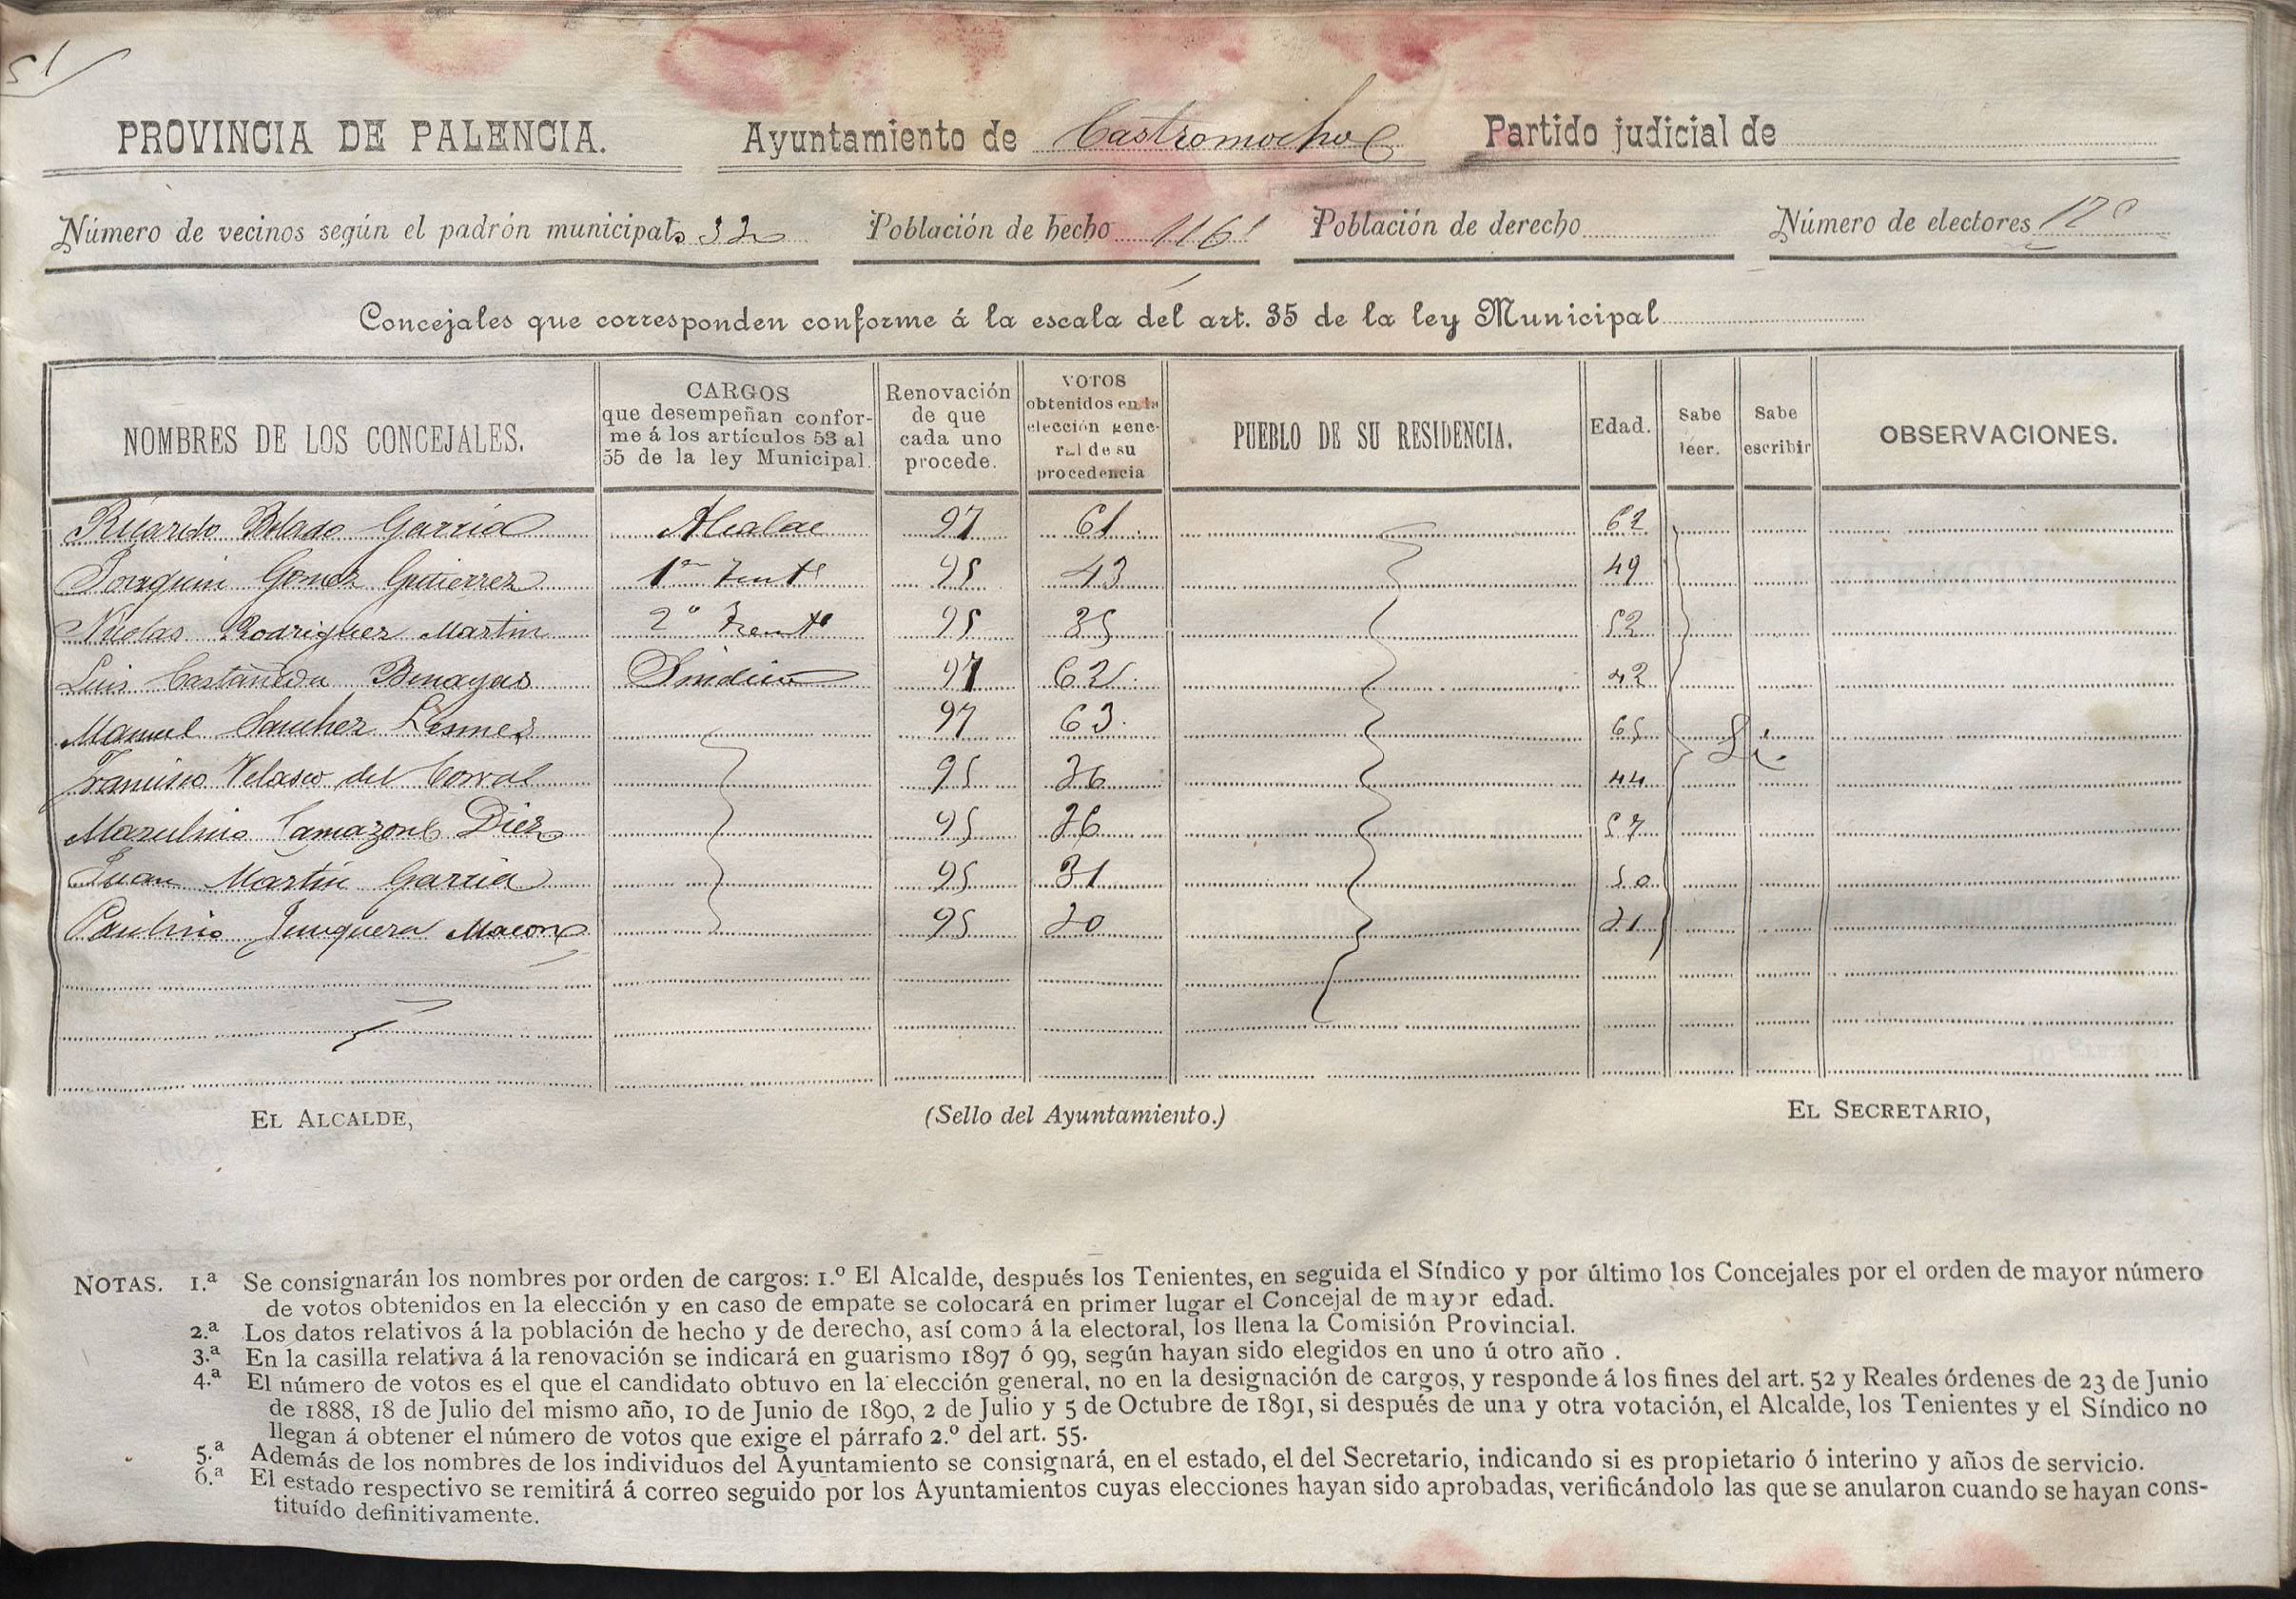 51
PROVINCIA DE PALENCIA. Ayuntamiento de Castromocho Partido judicial de
Número de vecinos según el padrón municipal 332 Población de hecho 1161 Población de derecho Número de electores
Concejales que corresponden conforme á la escala del art. 35 de la ley Municipal
NOMBRES DE LOS CONCEJALES.
CARGOS
que desempeñan confor-
me á los artículos 53 al
55 de la ley Municipal.
Renovación
de que
cada uno
procede.
VOTOS
obtenidos en la
elección gene-
ral de su
procedencia
PUEBLO DE SU RESIDENCIA.
Edad.
Sabe
leer.
Sabe
escribir
OBSERVACIONES.
Ricardo Blado Garcia Alcalde 97 61 62
Joaquin Gomez Gutierrez 1er Tente 95 43 49
Nicolas Rodriguez Martin 2º Tente 95 35 52
Luis Castañeda Benayas Sindico 97 62 42
Manuel Sanchez Lesmes 97 63 65 Si
Francisco Velasco del Corral 95 36 44
Marcelino Camazon Diez 95 26 57
Juan Martin Garcia 95 31 50
Paulino Junquera Macon 95 20 21
EL ALCALDE, (Sello del Ayuntamiento.) EL SECRETARIO,
NOTAS. 1.ª Se consignarán los nombres por orden de cargos: 1.º El Alcalde, después los Tenientes, en seguida el Síndico y por último los Concejales por el orden de mayor número
de votos obtenidos en la elección y en caso de empate se colocará en primer lugar el Concejal de mayor edad.
2.ª Los datos relativos á la población de hecho y de derecho, así como á la electoral, los llena la Comisión Provincial.
3.ª En la casilla relativa á la renovación se indicará en guarismo 1897 ó 99, según hayan sido elegidos en uno ú otro año .
4.ª El número de votos es el que el candidato obtuvo en la elección general, no en la designación de cargos, y responde á los fines del art. 52 y Reales órdenes de 23 de Junio
de 1888, 18 de Julio del mismo año, 10 de Junio de 1890, 2 de Julio y 5 de Octubre de 1891, si después de una y otra votación, el Alcalde, los Tenientes y el Síndico no
llegan á obtener el número de votos que exige el párrafo 2.º del art. 55.
5.ª Además de los nombres de los individuos del Ayuntamiento se consignará, en el estado, el del Secretario, indicando si es propietario ó interino y años de servicio.
6.ª El estado respectivo se remitirá á correo seguido por los Ayuntamientos cuyas elecciones hayan sido aprobadas, verificándolo las que se anularon cuando se hayan cons-
tituído definitivamente.